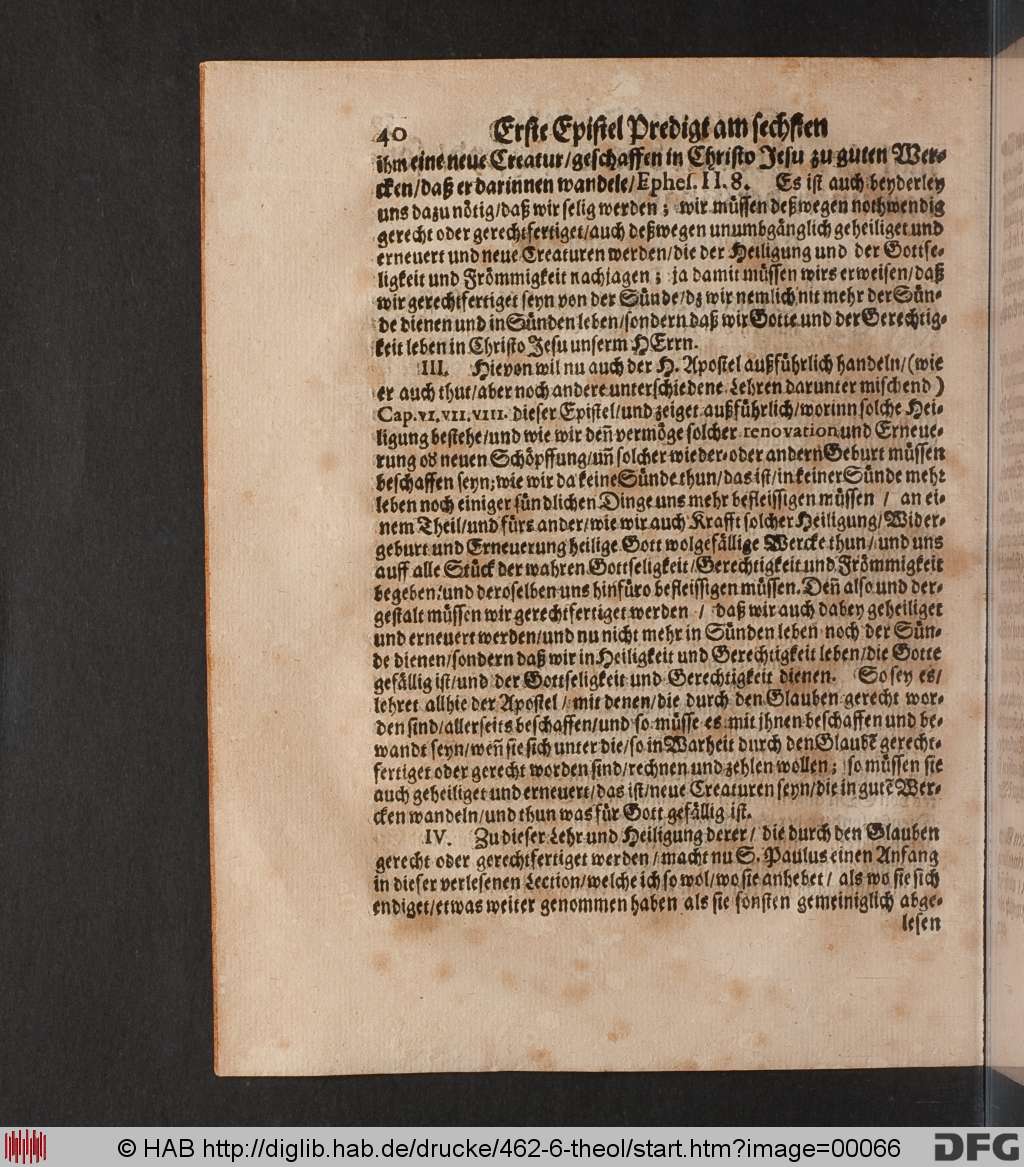 40 Erste Epistel Predigt am sechsten
ihm eine neue Creatur/geschaffen in Christo Jesu zu guten Wer-
cken/daß er darinnen wandele/Ephes. II. 8. Es ist auch beyderley
uns dazu nötig/daß wir selig werden; wir müssen deßwegen nothwendig
gerecht oder gerechtfertiget/auch deßwegen unumbgänglich geheiliget und
erneuert und neue Creaturen werden/die der Heiligung und der Gottse-
ligkeit und Frömmigkeit nachjagen; ja damit müssen wirs erweisen/daß
wir gerechtfertiget seyn von der Sünde/dz wir nemlich nit mehr der Sün-
de dienen und in Sünden leben/sondern daß wir Gotte und der Gerechtig-
keit leben in Christo Jesu unserm HErrn.
III. Hievon wil nu auch der H. Apostel außführlich handeln/(wie
er auch thut/aber noch andere unterschiedene Lehren darunter mischend)
Cap. VI. VII. VIII. dieser Epistel/und zeiget außführlich/worinn solche Hei-
ligung bestehe/und wie wir deñ vermöge solcher renovation und Erneue-
rung od neuen Schöpffung/uñ solcher wieder- oder andern Geburt müssen
beschaffen seyn; wie wir da keine Sünde thun/das ist/in keiner Sünde mehr
leben noch einiger sündlichen Dinge uns mehr befleissigen müssen / an ei-
nem Theil/und fürs ander/wie wir auch Krafft solcher Heiligung/Wider-
geburt und Erneuerung heilige Gott wolgefällige Wercke thun/und uns
auff alle Stück der wahren Gottseligkeit/Gerechtigkeit und Frömmigkeit
begeben/und deroselben uns hinfüro befleissigen müssen. Deñ also und der-
gestalt müssen wir gerechtfertiget werden / daß wir auch dabey geheiliget
und erneuert werden/und nu nicht mehr in Sünden leben noch der Sün-
de dienen/sondern daß wir in Heiligkeit und Gerechtigkeit leben/die Gotte
gefällig ist/und der Gottseligkeit und Gerechtigkeit dienen. So sey es/
lehret allhie der Apostel / mit denen/die durch den Glauben gerecht wor-
den sind/allerseits beschaffen/und so müsse es mit ihnen beschaffen und be-
wandt seyn/weñ sie sich unter die/so in Warheit durch den Glaubẽ gerecht-
fertiget oder gerecht worden sind/rechnen und zehlen wollen; so müssen sie
auch geheiliget und erneuert/das ist/neue Creaturen seyn/die in gutẽ Wer-
cken wandeln/und thun was für Gott gefällig ist.
IV. Zu dieser Lehr und Heiligung derer/ die durch den Glauben
gerecht oder gerechtfertiget werden/macht nu S. Paulus einen Anfang
in dieser verlesenen Lection/welche ich so wol/wo sie anhebet/ als wo sie sich
endiget/etwas weiter genommen haben als sie sonsten gemeiniglich abge-
lesen
© HAB http://diglib.hab.de/drucke/462-6-theol/start.htm?image=00066
DFG